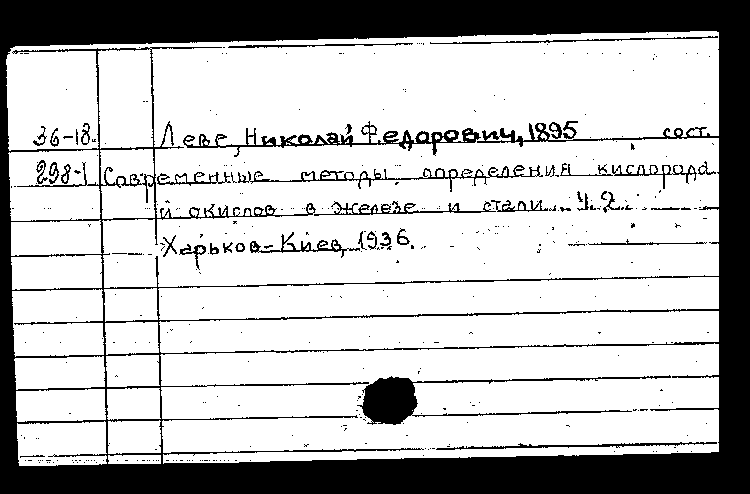 36-18. Леве, Николай Федорович, 1895 сост.
298-1 Современные методы определения кислорода
и окислов в железе и стали. Ч. 2.
Харьков-Киев, 1936.